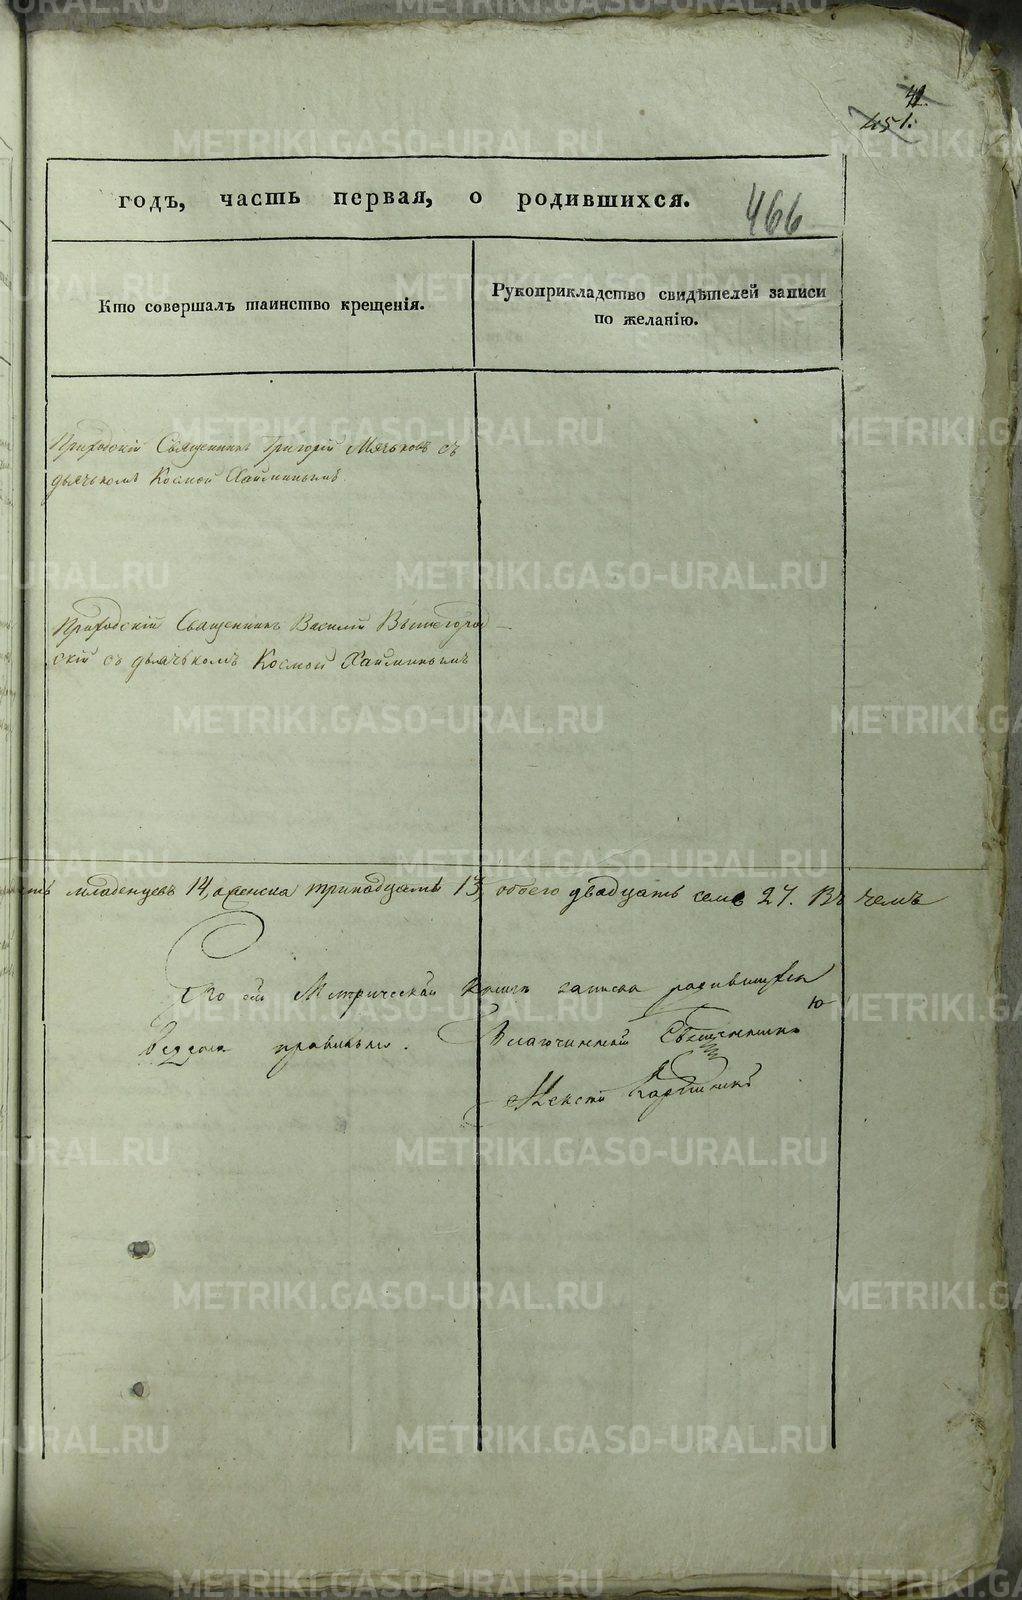 42.
451.
годъ, часть первая, о родившихся.
466
Кто совершалъ таинство крещенія.
Рукоприкладство свидѣтелей записи
по желанію.
Приходскій Священникъ Григорій Мячьковъ съ
дьячькомъ Космой Хайминымъ
Приходскій Священникъ Василій Вышегород–
скій съ дьячькомъ Космой Хайминымъ
младенцевъ 14, а женска тринадцать 13, обоего двадцать семь 27. Въ чемъ
По сей Метрической книгѣ записка родившихся
ведена правильно. Благочинный Священникъ
Алексій
METRIKI.GASO-URAL.RU